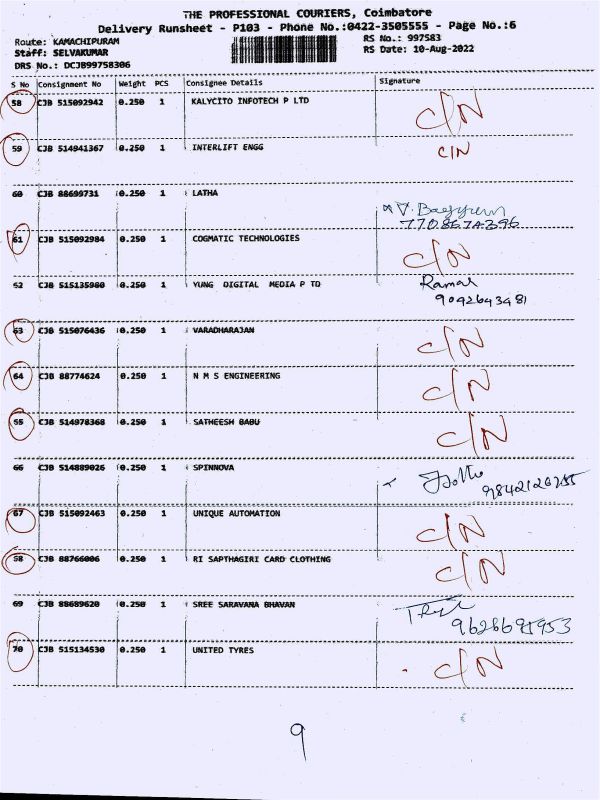 THE PROFESSIONAL COURIERS, Coimbatore
Delivery Runsheet - P103 - Phone No.:0422-3505555 - Page No.:6
Route: KAMACHIPURAM RS No.: 997583
Staff: SELVAKUMAR RS Date: 10-Aug-2022
DRS No.: DCJB99758306
S No Consignment No Weight PCS Consignee Details Signature
58 CJB 515092942 0.250 1 KALYCITO INFOTECH P LTD C/N
59 CJB 514941367 0.250 1 INTERLIFT ENGG C/N
60 CJB 88699731 0.250 1 LATHA
61 CJB 515092984 0.250 1 COGMATIC TECHNOLOGIES C/N
62 CJB 515135980 0.250 1 YUNG DIGITAL MEDIA P TD Ramar
9092643481
63 CJB 515076436 0.250 1 VARADHARAJAN C/N
64 CJB 88774624 0.250 1 N M S ENGINEERING C/N
65 CJB 514978368 0.250 1 SATHEESH BABU C/N
66 CJB 514889026 0.250 1 SPINNOVA
67 CJB 515092463 0.250 1 UNIQUE AUTOMATION C/N
68 CJB 88766006 0.250 1 RI SAPTHAGIRI CARD CLOTHING C/N
69 CJB 88689620 0.250 1 SREE SARAVANA BHAVAN
9628695953
70 CJB 515134530 0.250 1 UNITED TYRES C/N
9